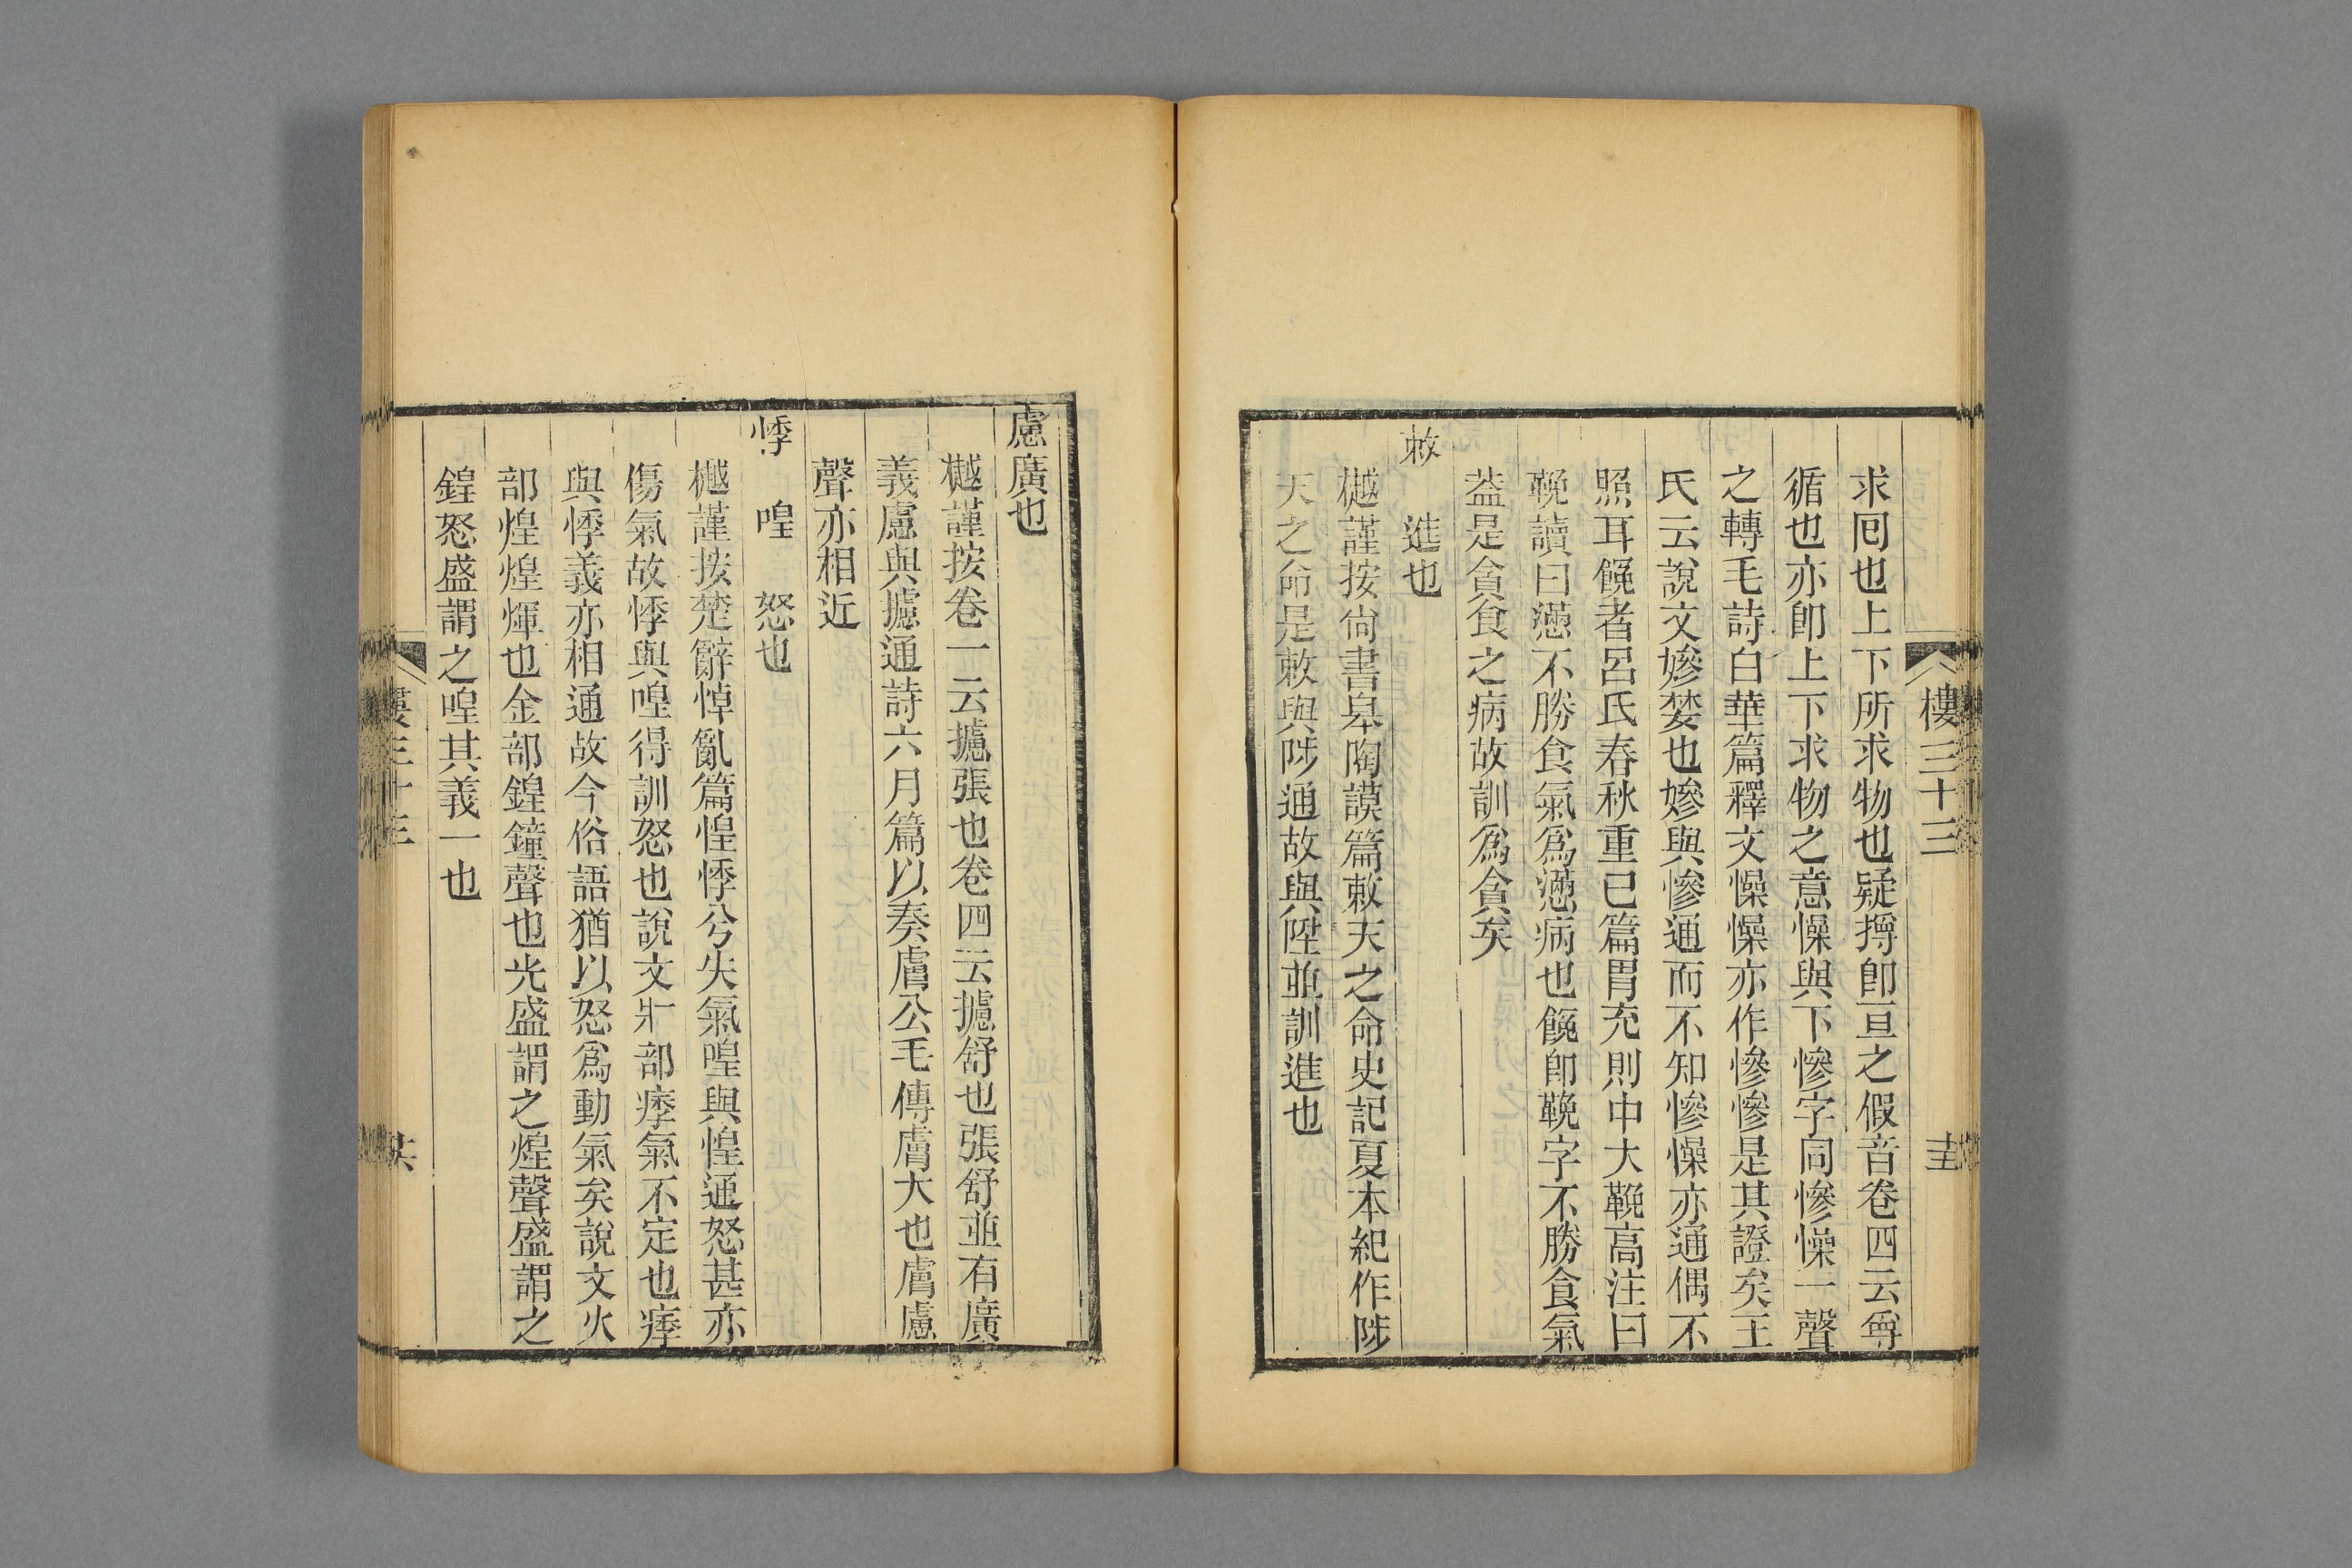 樓三十三
求囘也上下所求物也疑撏卽亘之假音卷四云𢒫
循也亦卽上下求物之意懆與下慘字同慘懆一聲
之轉毛詩白華篇釋文懆懆亦作慘慘是其證矣王
氏云說文嫪婪也嫪與慘通而不知慘懆亦通偶不
照耳餽者呂氏春秋重己篇胃充則中大鞔高注曰
鞔讀曰懣不勝食氣爲懣病也餽卽鞔字不勝食氣
葢是貪食之病故訓爲貪矣
敕　進也
樾謹按尙書皋陶謨篇敕天之命史記夏本紀作陟
天之命是敕與陟通故與陞並訓進也
慮廣也
樾謹按卷一云攄張也卷四云攄舒也張舒並有廣
義慮與攄通詩六月篇以奏膚公毛傳膚大也膚慮
聲亦相近
悸　喤　怒也
樾謹按楚辭悼亂篇惶悸兮失氣喤與惶通怒甚亦
傷氣故悸與喤得訓怒也說文疒部痵氣不定也痵
與悸義亦相通故今俗語猶以怒爲動氣矣說文火
部煌煌煇也金部鍠鐘聲也光盛謂之煌聲盛謂之
鍠怒盛謂之喤其義一也
樓三十三